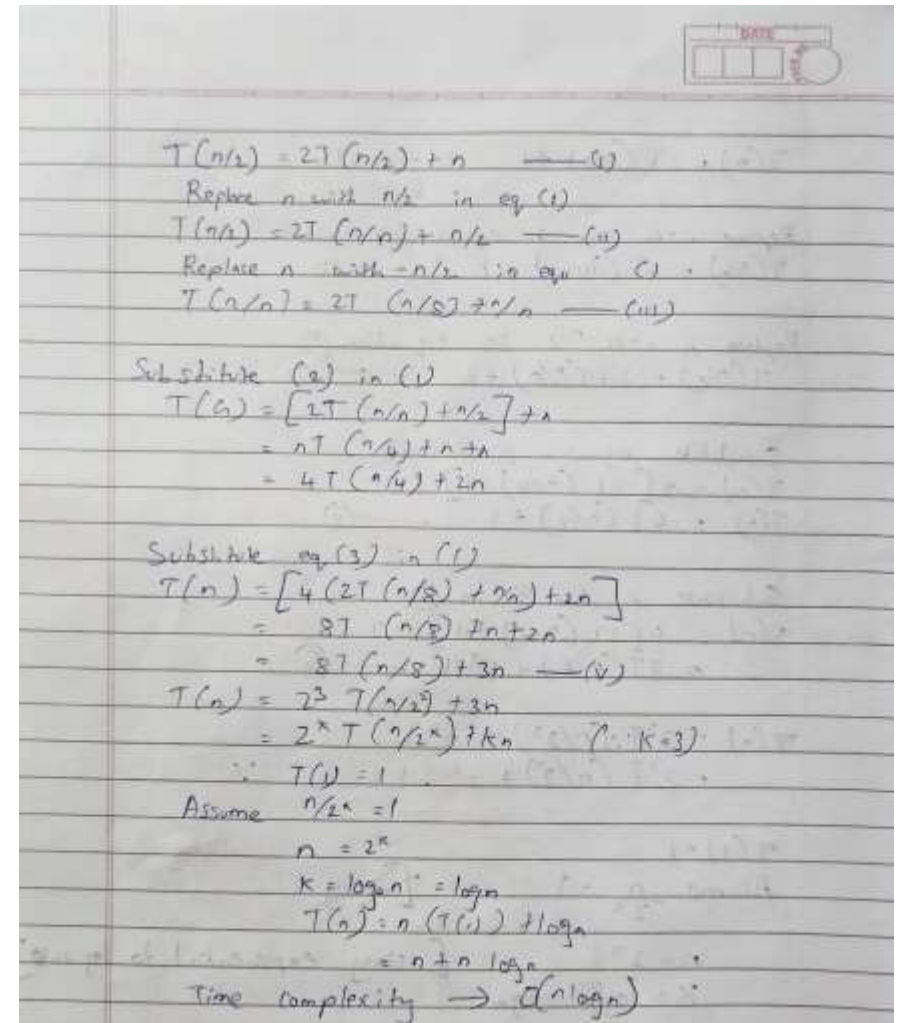 DATE
T(n/2) = 2T(n/2) + n —— (1)
Replace n with n/2 in eq (1)
T(n/2) = 2T (n/n) + n/2 —— (ii)
Replace n with n/2 in eqn (1)
T(n/n) = 2T (n/8) + n/n —— (iii)
Substitute (2) in (1)
T(n) = [2T (n/n) + n/2] + n
= nT (n/4) + n + n
= 4T (n/4) + 2n
Substitute eq (3) in (1)
T(n) = [4 (2T (n/8) + n/n) + 2n]
= 8T (n/8) + n + 2n
= 8T (n/8) + 3n —— (v)
T(n) = 2³ T(n/2³) + 3n
= 2ᵏ T(n/2ᵏ) + kn (∵ K=3)
∵ T(1) = 1
Assume n/2ᵏ = 1
n = 2ᵏ
K = log₂n = logn
T(n) = n (T(1)) + logn
= n + n logn
Time complexity → O(nlogn)